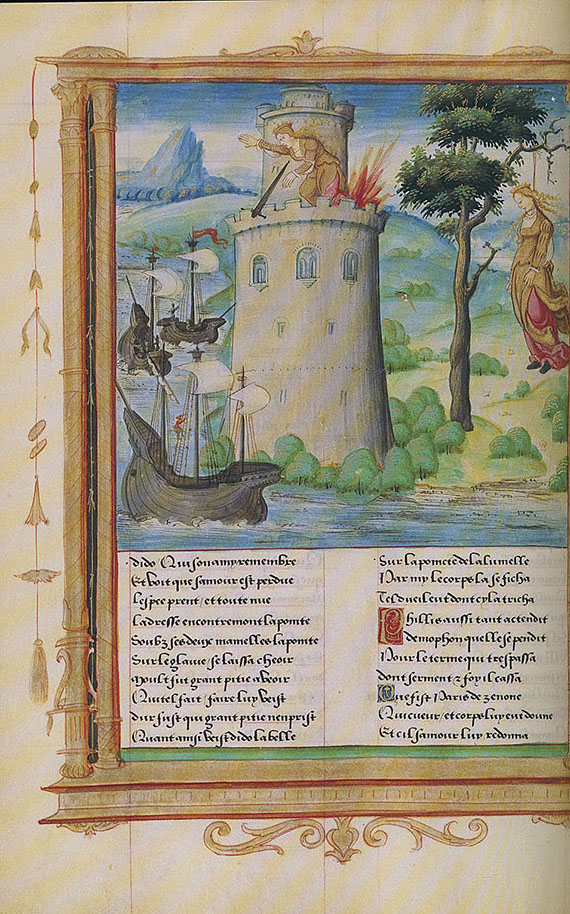 dido Qui son amy remembre
Et voit que samour est perdue
Lespee prent / et toute nue
La dresse encontremont la pointe
Soubz ses deux mamelles la pointe
Sur le glaiue se laissa cheoir
Moult fut grant pitie a veoir
Qui tel fait faire luy veist
dur fust qui grant pitie nen prist
Quant ainsi veist dido la belle
Sur la poincte de la lumelle
Parmy le corps la se ficha
Tel dueil eut dont cy la tricha
Phillis aussi tant actendit
demophon quelle se pendit
Pour le terme qui trespassa
dont serment & foy il cassa
Que fist Paris de zenone
Qui cueur / et corps luy eut donne
Et cil samour luy redonna